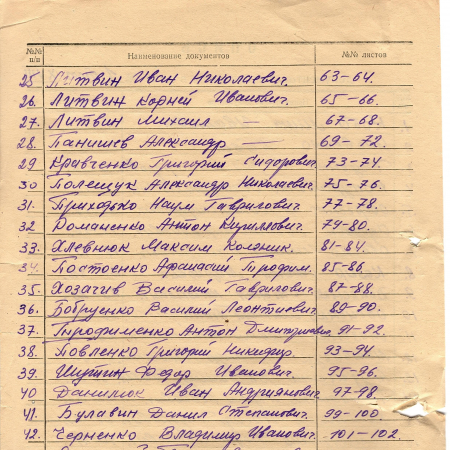 №№ п/п Наименование документов №№ листов
25. Литвин Иван Николаевич. 63-64.
26. Литвин Корней Иванович. 65-66.
27. Литвин Михаил — 67-68.
28. Панишев Александр — 69-72.
29 Кравченко Григорий Сидорович. 73-74.
30 Полещук Александр Николаевич. 75-76.
31. Приходько Наум Гаврилович. 77-78.
32 Романенко Антон Кириллович. 79-80.
33. Хлевнюк Максим 81-84.
34. Постоенко Афанасий Трофим. 85-86.
35. Хозачив Василий Гаврилович. 87-88.
36. Бобруенко Василий Леонтиевич. 89-90.
37. Трофименко Антон Дмитриевич 91-92.
38. Павленко Григорий Никифор. 93-94.
39. Шушин Федор Иванович. 95-96.
40 Данилюк Иван Андриянович 97-98.
41. Булавин Данил Степанович. 99-100
42. Черненко Владимир Иванович. 101-102.